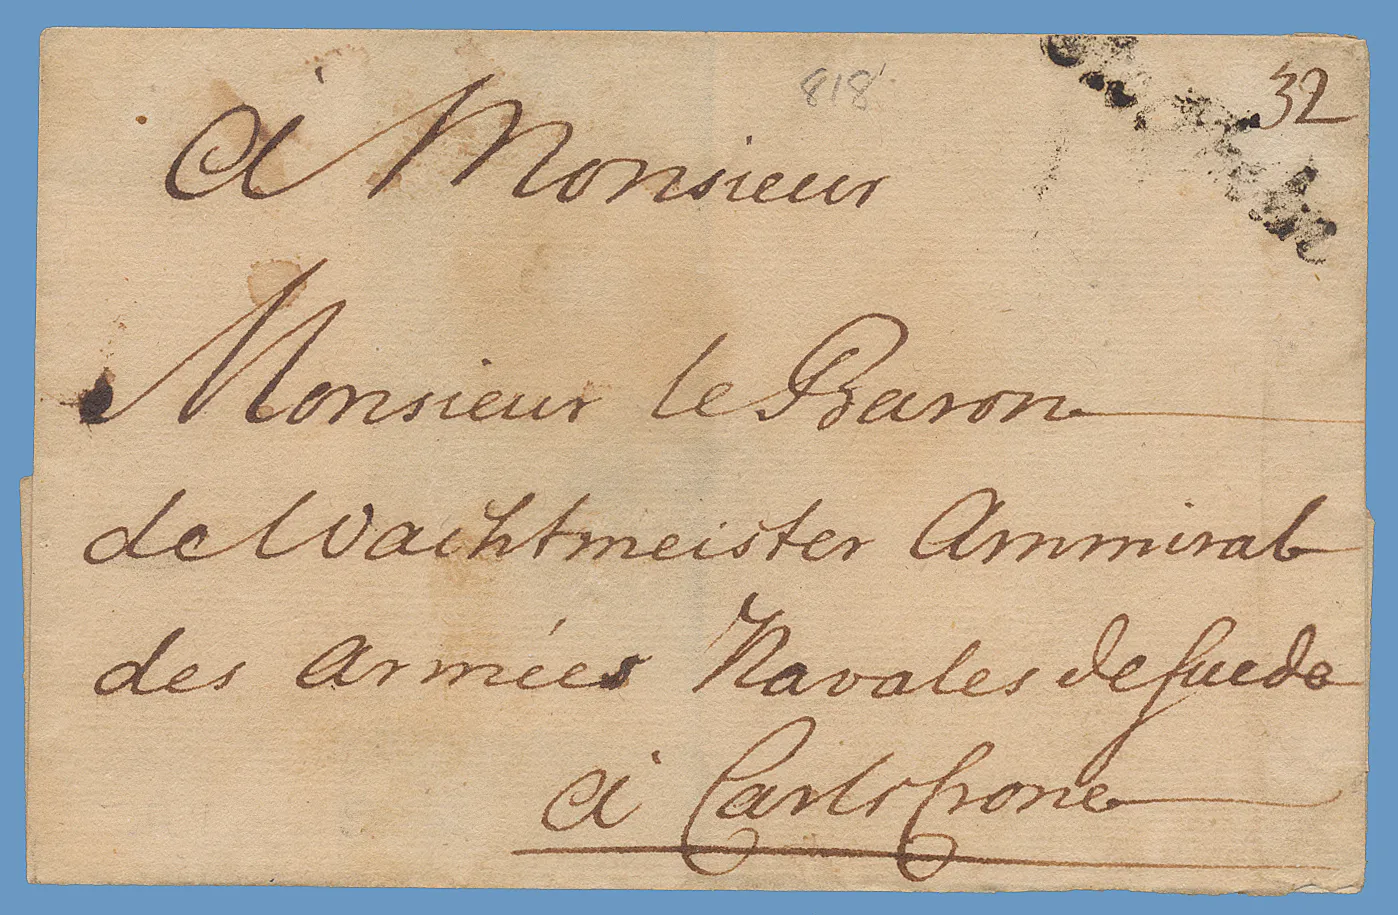 818
32
à Monsieur
Monsieur le Baron
de Wachtmeister Ammiral
des Armées Navales de Suede
à Carlscrone